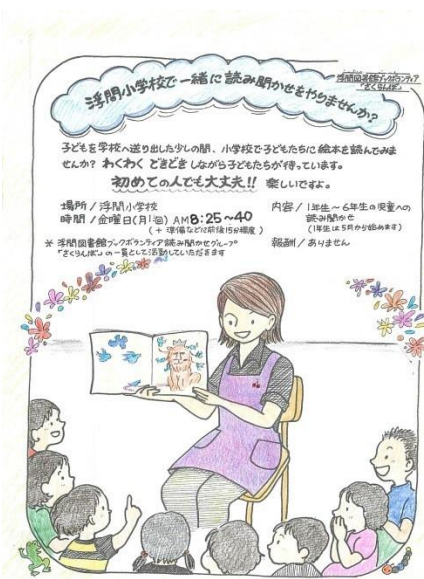 浮間小学校で一緒に読み聞かせをやりませんか?
浮間図書館ブックボランティア
「さくらんぼ」
子どもを学校へ送り出した少しの間、小学校で子どもたちに絵本を読んでみま
せんか? わくわく どきどき しながら子どもたちが待っています。
初めての人でも大丈夫!! 楽しいですよ。
場所/浮間小学校
時間/金曜日(月1回) AM8:25~40
(+ 準備などに前後15分程度)
* 浮間図書館ブックボランティア読み聞かせグループ
「さくらんぼ」の一員として活動していただきます
内容/1年生~6年生の児童への
読み聞かせ
(1年生は5月から始めます)
報酬/ありません